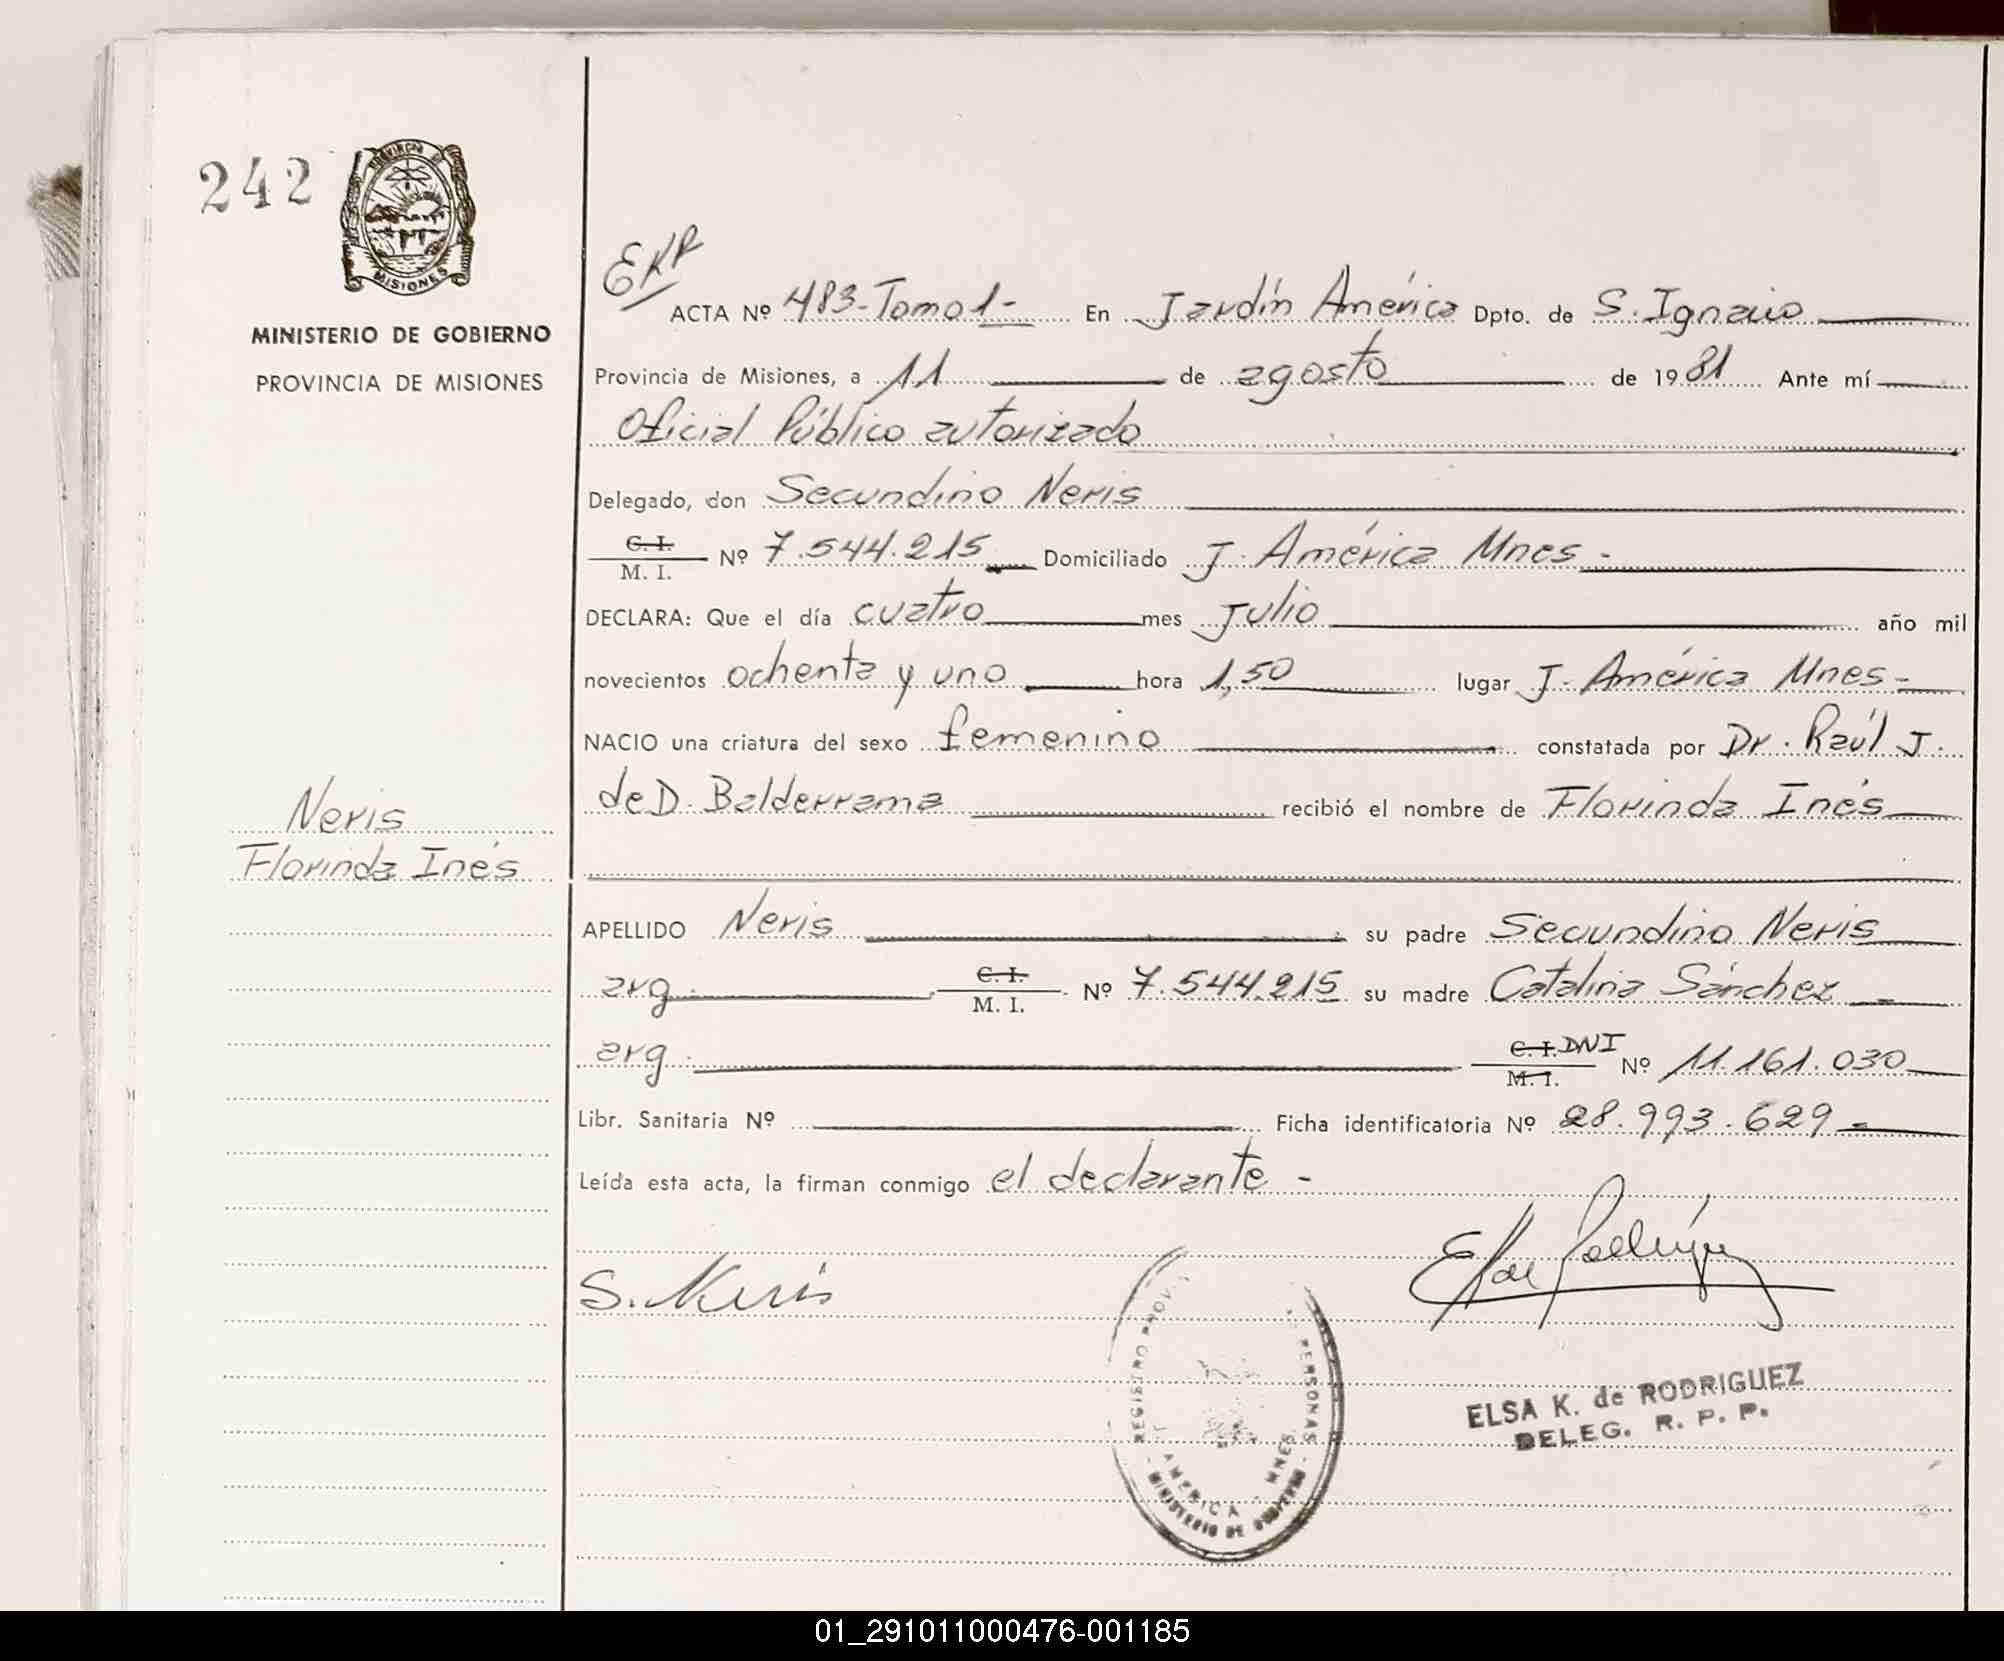 242
PROVINCIA DE
MISIONES
MINISTERIO DE GOBIERNO
PROVINCIA DE MISIONES
EKR
ACTA Nº 483-Tomo 1- En Jardín América Dpto. de S. Ignacio
Provincia de Misiones, a 11 de agosto de 1981 Ante mí
Oficial Público autorizado
Delegado, don Secundino Neris
C. I.
M. I. Nº 7.544.215 Domiciliado J. América Mnes -
DECLARA: Que el día cuatro mes Julio año mil
novecientos ochenta y uno hora 1,50 lugar J. América Mnes -
NACIO una criatura del sexo femenino constatada por Dr. Raúl J.
de D. Balderrama recibió el nombre de Florinda Inés
Neris
Florinda Inés
APELLIDO Neris su padre Secundino Neris
arg. C. I.
M. I. Nº 7.544.215 su madre Catalina Sánchez
arg. C. I. DNI
M. I. Nº 11.161.030
Libr. Sanitaria Nº Ficha identificatoria Nº 28.993.629
Leída esta acta, la firman conmigo el declarante -
S. Neris
Elsa de Rodríguez
REGISTRO PROV. PERSONAS
AMERICA - MNES.
- MINISTERIO DE GOBIERNO -
ELSA K. de RODRIGUEZ
DELEG. R. P. P.
01_291011000476-001185